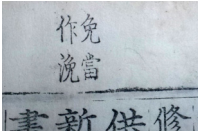 免當
作浼
修供新書